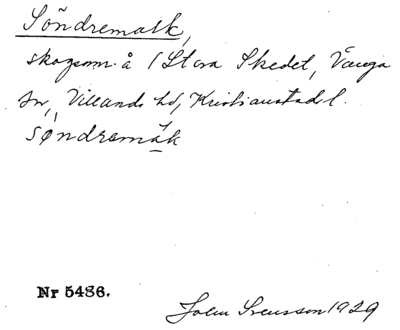 Söndremalk,
skogsom. å 1 Stora Skedet, Vånga
sn, Villands hd, Kristianstads l.
søndremàk
Nr 5486.
John Svensson 1929